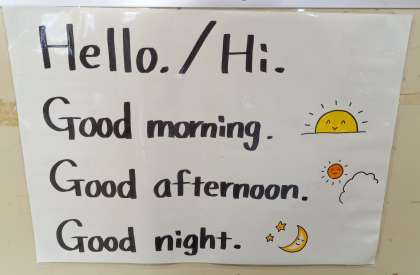 Hello./Hi.
Good morning.
Good afternoon.
Good night.